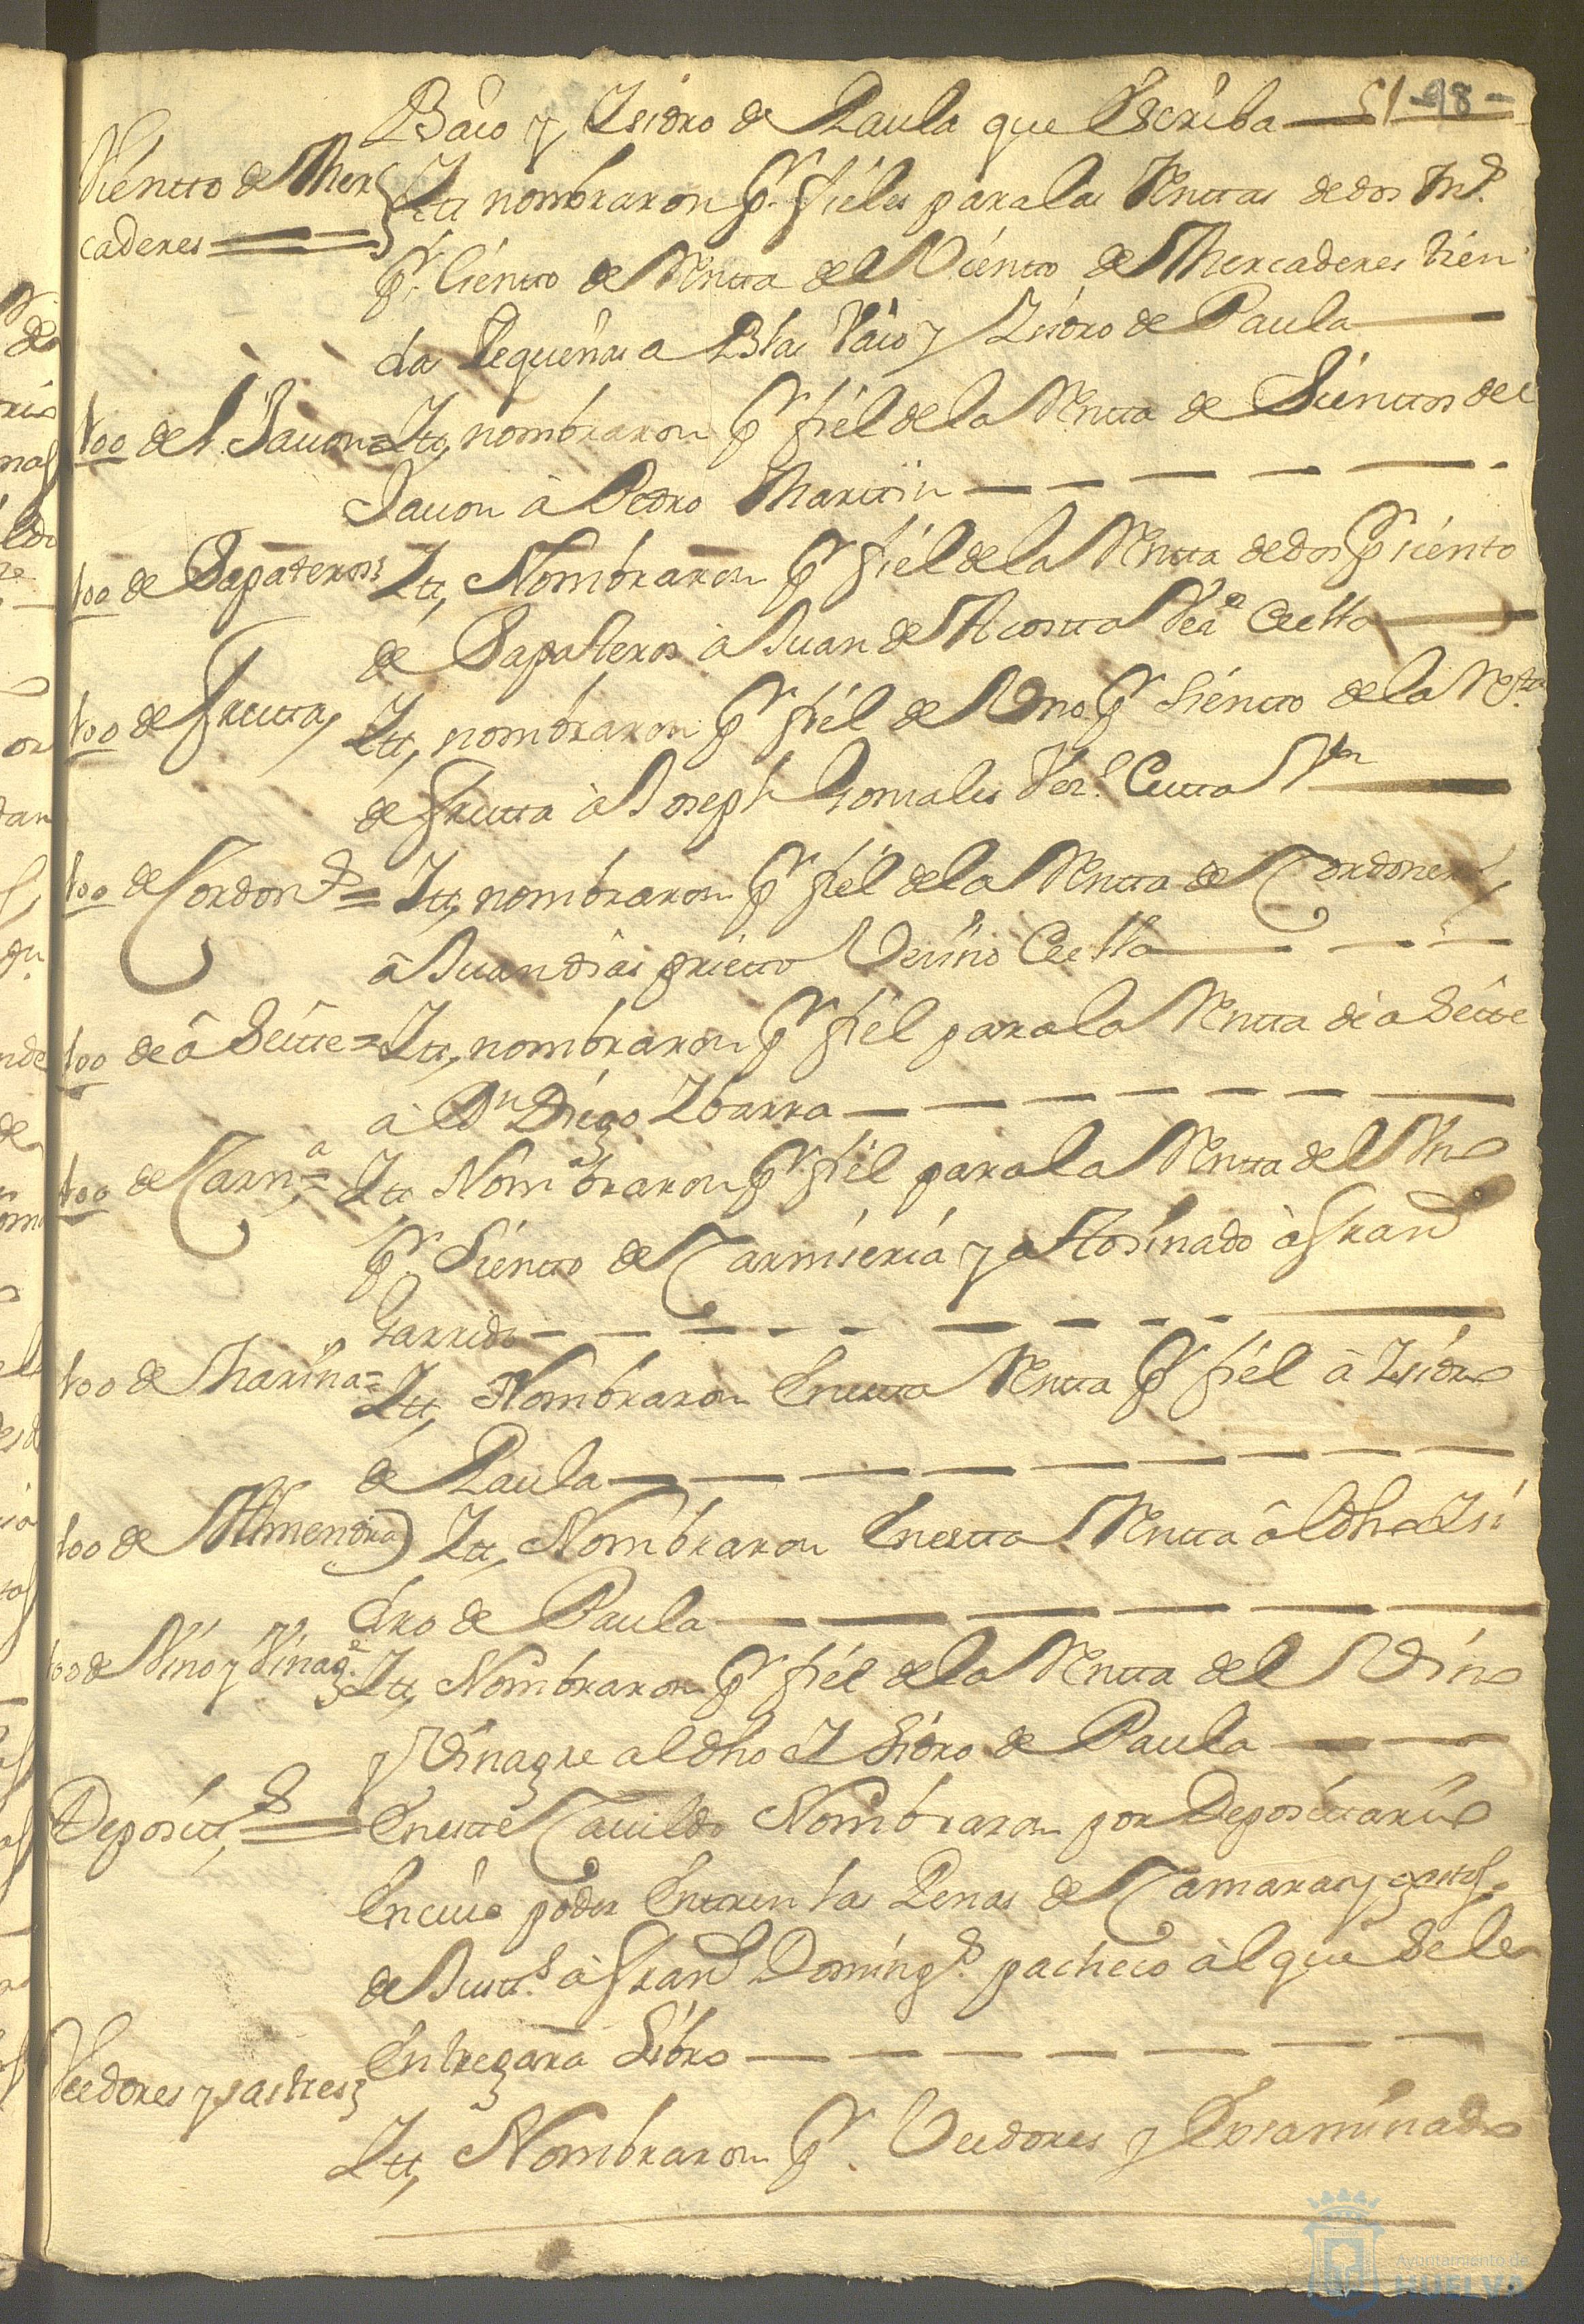 Baio y Isidro de Paula que Escriba 51 - 98 -
Viento de Mer
caderes
Itt nombraron pr. fieles para las Renttas de dos Ms.
pr. Ciento de Rentta del Viento de Mercaderes tien
das Pequeñas a Blas Vaio y Isidro de Paula
100 del Jauon =
Itt, nombraron pr. fiel de la Rentta de Sienttos del
Jauon â Pedro Marttin
100 de Sapateros
Itt, Nombraron pr. fiel de la Rentta de dos pr siento
de Sapateros à Juan de Acostta Vea
100 de Frutta
Itt, nombraron pr. fiel de Uno pr Siento de la Rtta
de frutta à Joseph Gonzales
100 de Cordons =
Itt, nombraron pr. fiel de la Rentta de Cordoners
â Juan dias prietto Vecino
100 de â Seitte =
Itt, nombraron pr. fiel para la Rentta de a Seitte
â Dn. Diego Ibarra
100 de Carna. =
Itt Nombraron pr. fiel para la Rentta del Uno
pr. Siento de Carniseria y attosinado à Franco
Garrido
100 de Harina =
Itt, Nombraron En estta Rentta pr fiel â Isidro
de Paula
100 de Almendra
Itt, Nombraron En estta Rentta âl dho Isi
dro de Paula
100 de Vino y Vinage.
Itt, Nombraron pr. fiel de la Rentta del Vino
y Vinagre al dho Isidro de Paula
Deposits
En estte Cauildo Nombraron por Deposittario
En cuio poder Entren las Penas de Camara y gastos
de Justts. â Franco Domings. pacheco âl que Se le
Entregara Libro
Veedores y sastres
Itt, Nombraron pr. Veedores y Exsaminado
Ayuntamiento de
HUELVA